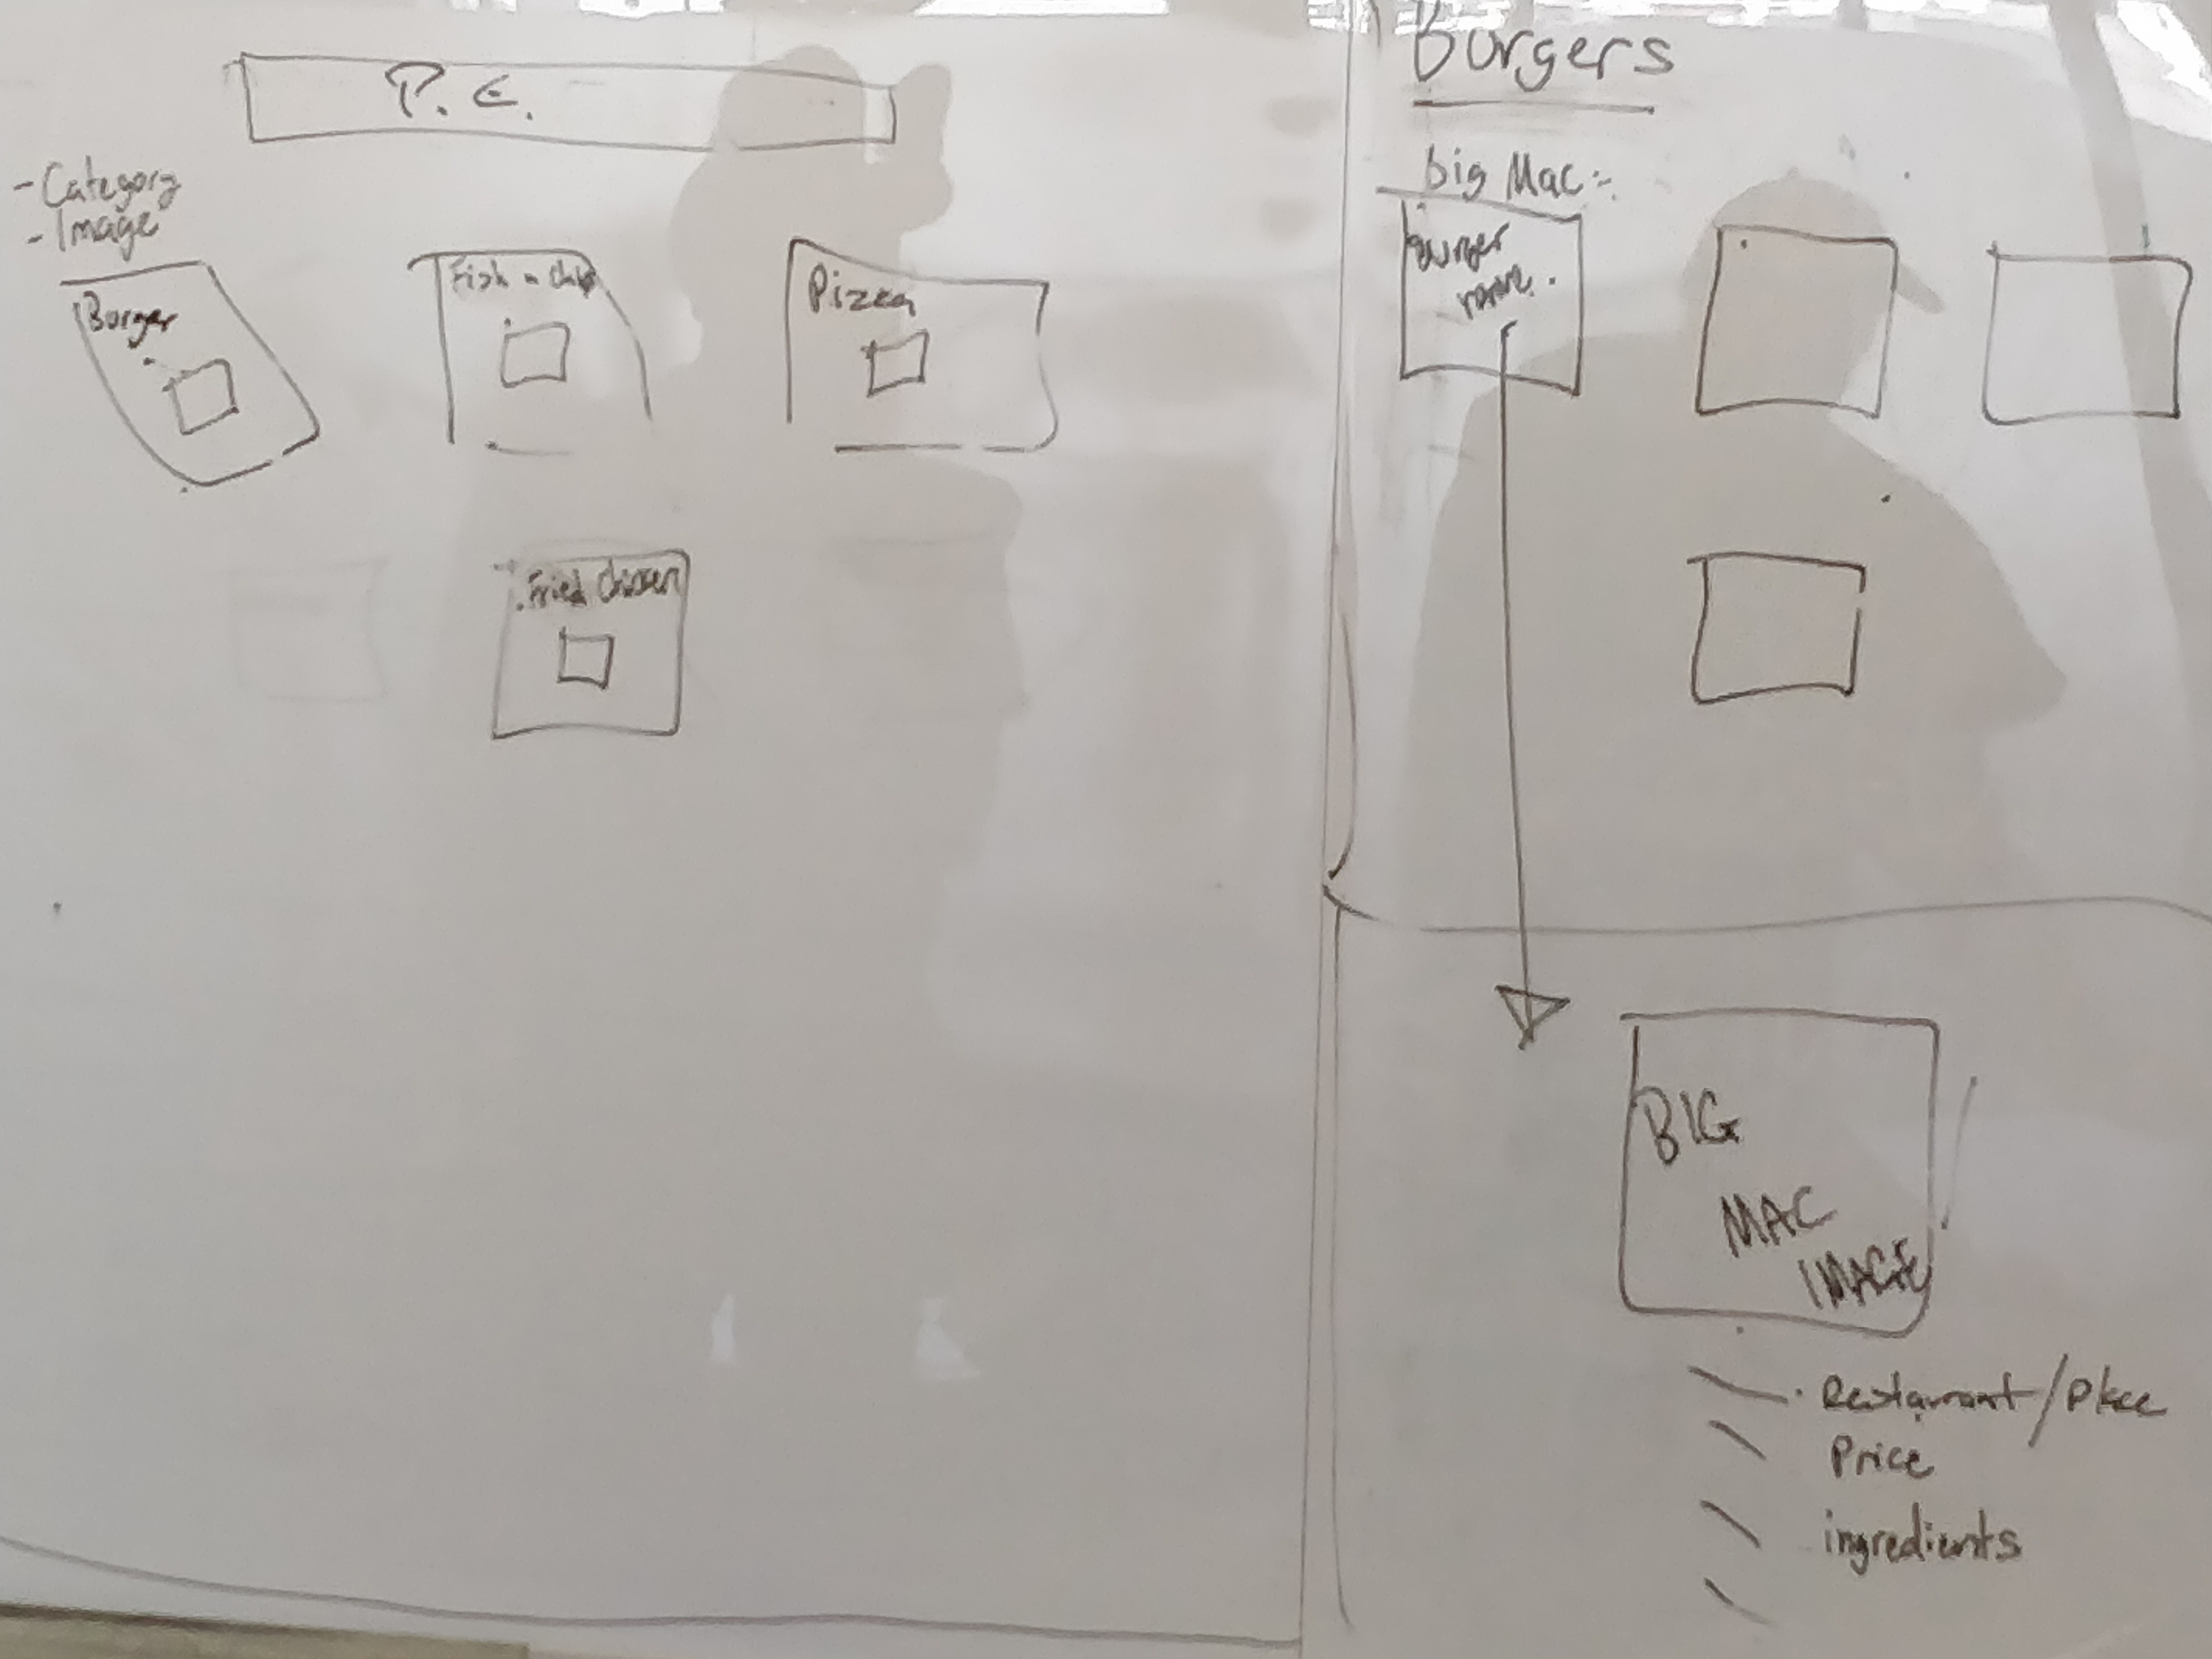 P. E.
- Category
- Image
Burger
Fish n Chip
Pizza
Fried Chicken
Burgers
Big Mac :-
Burger
name.
BIG
MAC
IMAGE
Restaurant / Place
Price
ingredients